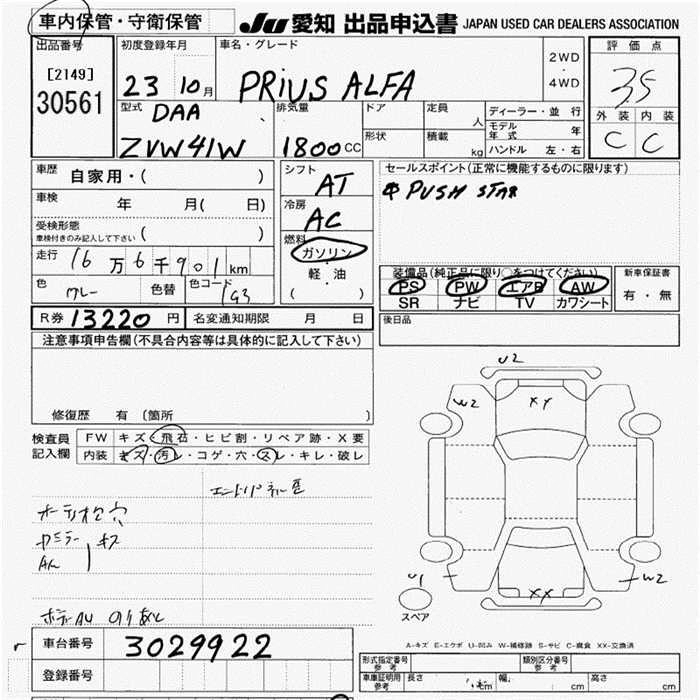 車内保管・守衛保管 JU 愛知 出品申込書 JAPAN USED CAR DEALERS ASSOCIATION
出品番号 初度登録年月 車名・グレード 2WD・4WD 評価点
[2149] 23 10月 PRIUS ALFA 3.5
30561 型式 DAA 排気量 ドア 定員 人 ディーラー・並行 外装 内装
ZVW41W 1800CC 形状 積載 kg モデル年式 年 C C
ハンドル 左・右
車歴 自家用・( ) シフト AT セールスポイント(正常に機能するものに限ります)
車検 年 月( 日) 冷房 AC PUSH STAR
受検形態 ( )
車検付きのみ記入して下さい
燃料 ガソリン・軽油 ( )
走行 16万6千901km
色 グレー 色替 色コード 1G3
装備品(純正品に限り○をつけてください) 新車保証書
PS PW エアB AW 有・無
SR ナビ TV カワシート
R券 13220円 名変通知期限 月 日 後日品
注意事項申告欄(不具合内容等は具体的に記入して下さい)
修復歴 有 (箇所 )
検査員記入欄 FW キズ・飛石・ヒビ割・リペア跡・X要
内装 キズ・汚レ・コゲ・穴・スレ・キレ・破レ
U2
W2 XY
U1 XX W2
スペア
A-キズ E-エクボ U-凹み W-補修跡 S-サビ C-腐食 XX-交換済
車台番号 3029922
登録番号
形式指定番号 参考 類別区分番号 参考
車庫証明用 参考 長さ cm 幅 cm 高さ cm